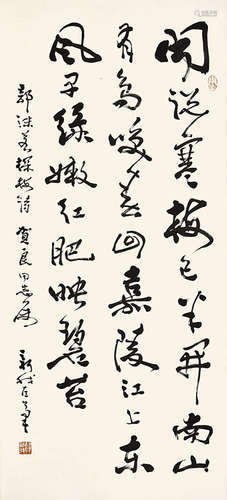 闻说寒梅已半开南山
有鸟唤春回嘉陵江上东
风早绿嫩红肥映碧苔
郭沫若探梅诗 贺良同志属